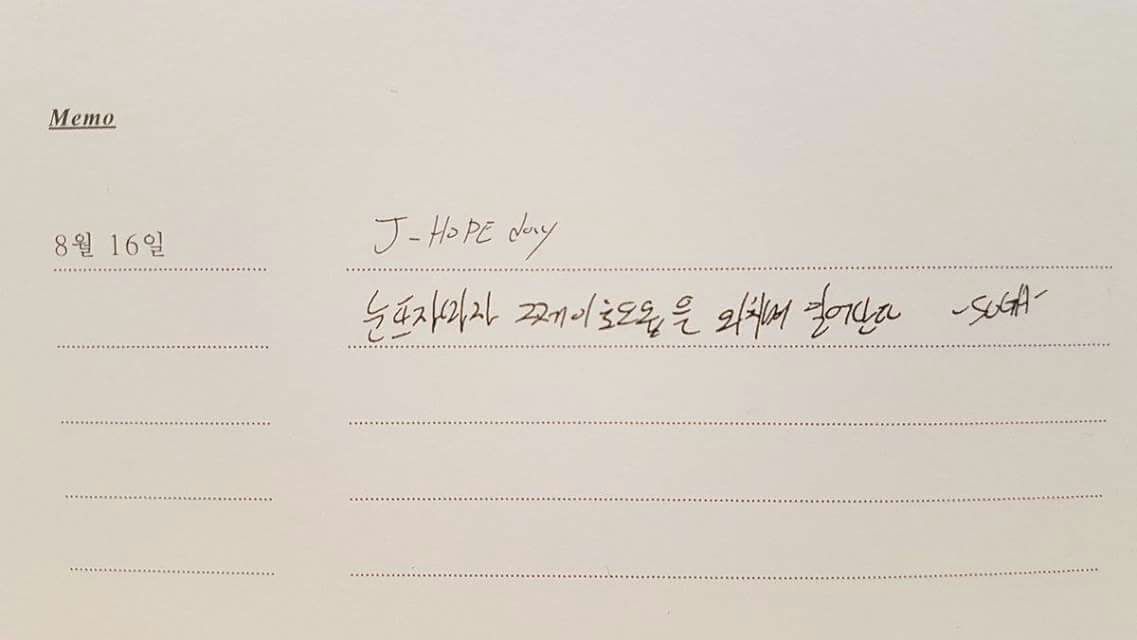 Memo
8월 16일 J-HOPE day
눈뜨자마자 제이호도홉을 외치며 일어난다 -SUGA-